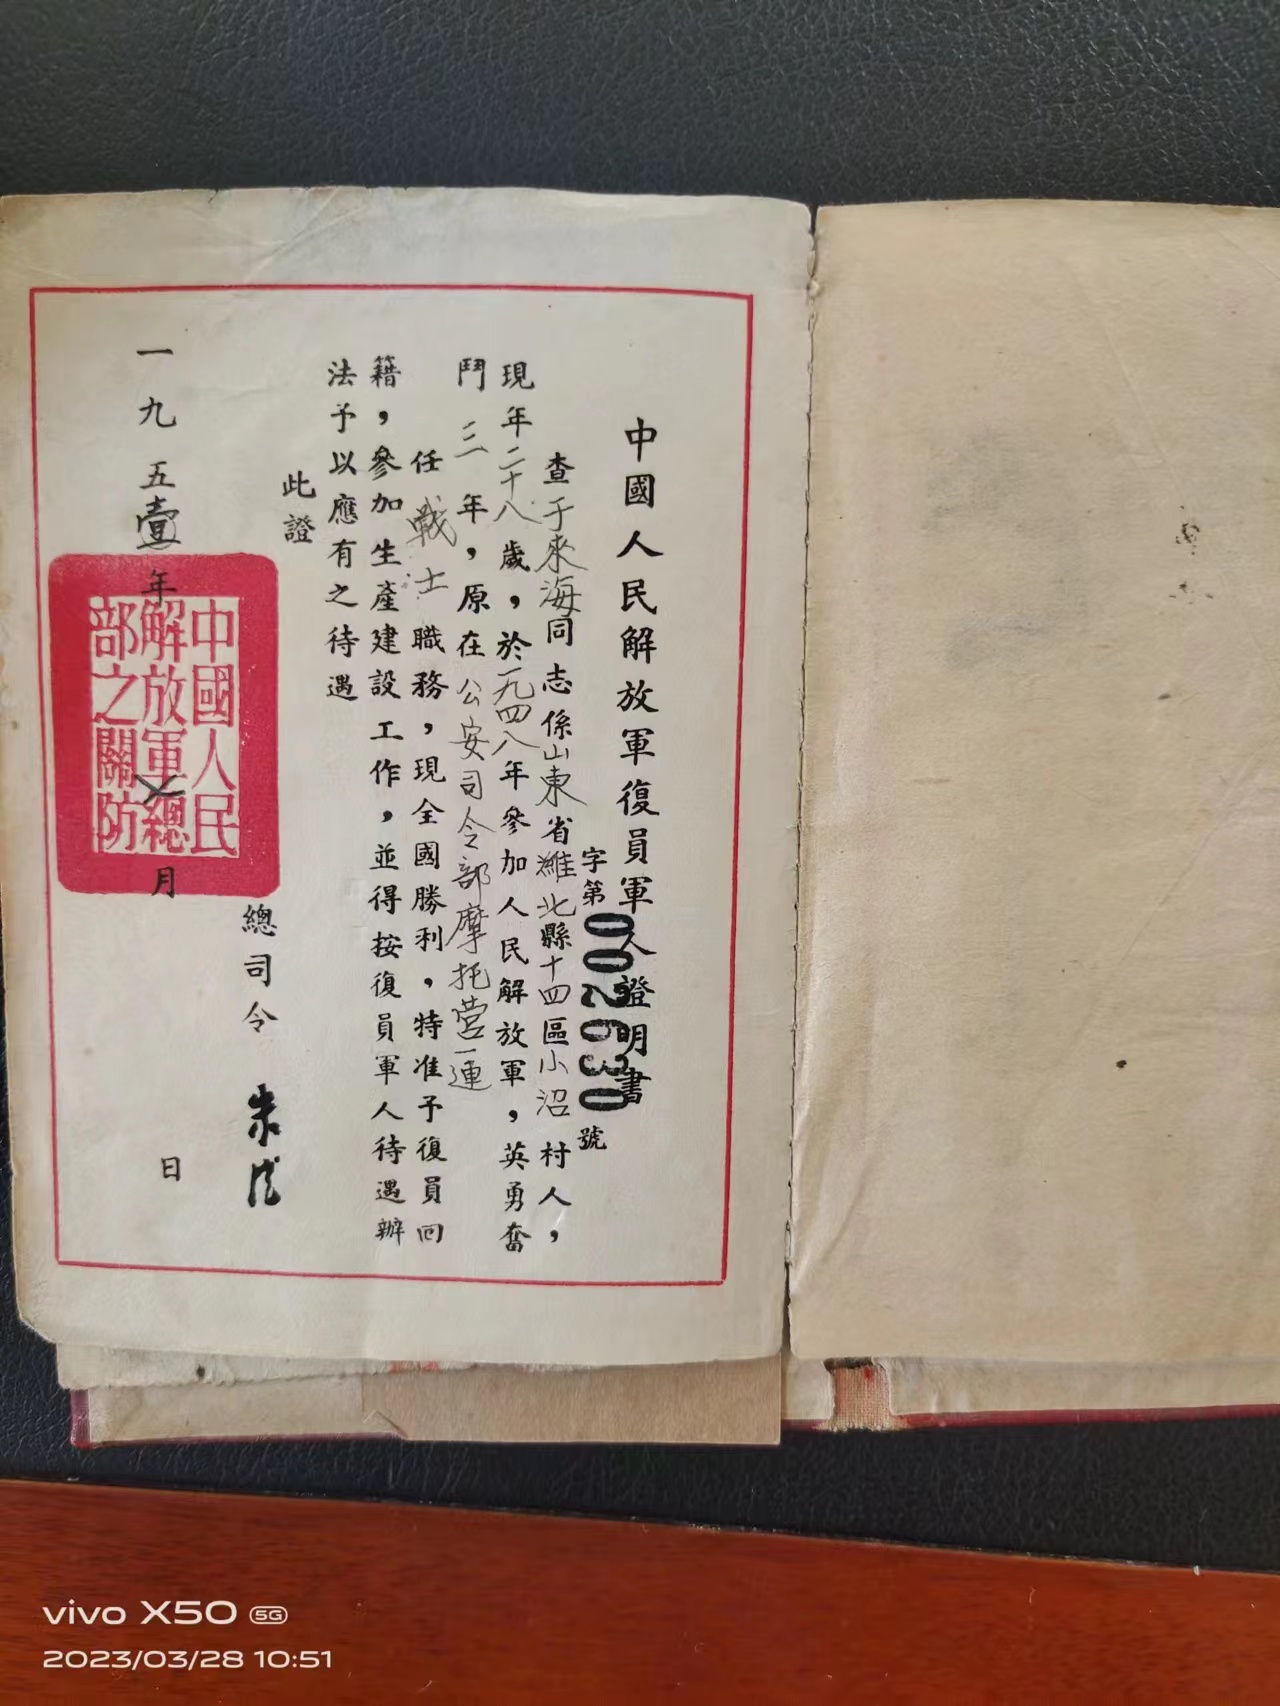 中國人民解放軍復員軍人證明書
字第002630號
查于來海同志係山東省濰北縣十四區小沼村人，
現年二十八歲，於一九四八年參加人民解放軍，英勇奮
鬥三年，原在公安司令部摩托营一連
任戰士職務，現全國勝利，特准予復員回
籍，參加生產建設工作，並得按復員軍人待遇辦
法予以應有之待遇
此證
總司令 朱德
一九五壹年六月 日
中國人民
解放軍總
部之關防
vivo X50 5G
2023/03/28 10:51